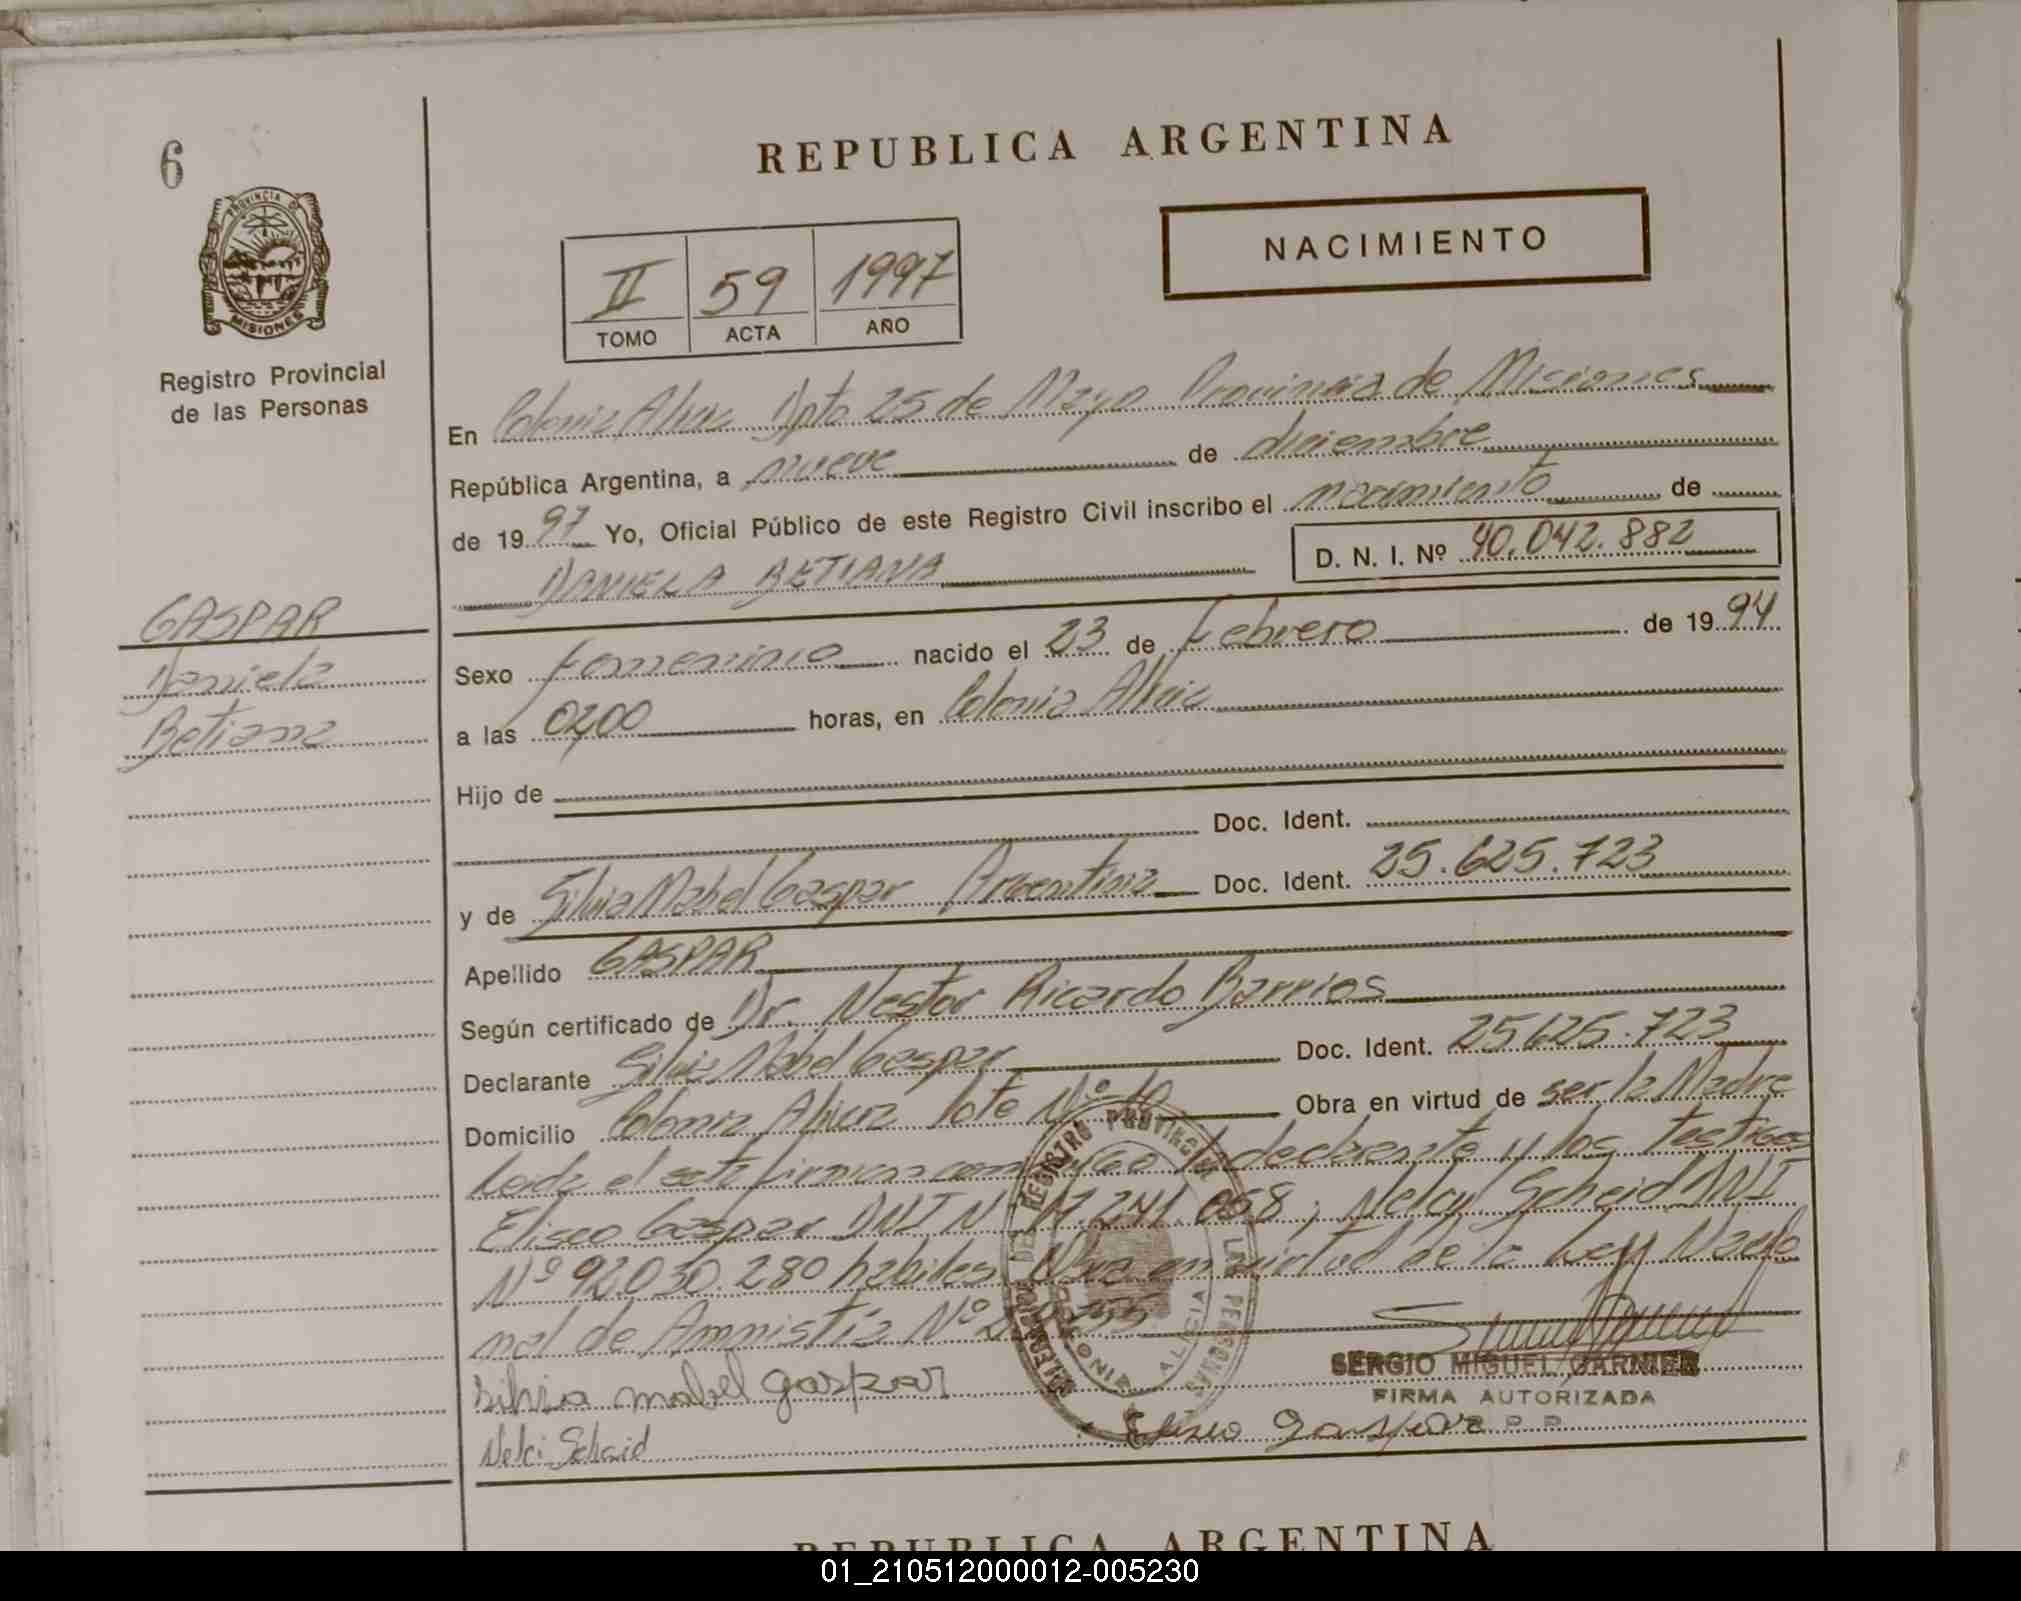 6
REPUBLICA ARGENTINA
PROVINCIA DE
MISIONES
Registro Provincial
de las Personas
NACIMIENTO
II 59 1997
TOMO ACTA AÑO
En Colonia Alicia Dpto 25 de Mayo Provincia de Misiones
República Argentina, a nueve de diciembre
de 1997 Yo, Oficial Público de este Registro Civil inscribo el nacimiento de
DANIELA BETIANA D. N. I. Nº 40.042.882
GASPAR
Daniela
Betiana
Sexo Femenino nacido el 23 de Febrero de 1994
a las 02,00 horas, en Colonia Alicia
Hijo de
Doc. Ident.
y de Silvia Mabel Gaspar Argentina Doc. Ident. 25.625.723
Apellido GASPAR
Según certificado de Dr. Nestor Ricardo Barrios
Declarante Silvia Mabel Gaspar Doc. Ident. 25625.723
Domicilio Colonia Alicia lote Nº 10 Obra en virtud de ser la Madre
Leida el acta firman conmigo la declarante y los testigos
Eliseo Gaspar DNI Nº 17.241.058; Nelcy Scheid DNI
Nº 92.030.280 habiles. Obra en virtud de la Ley Nacio
nal de Amnistia Nº
REGISTRO PROVINCIAL DE LAS PERSONAS
COLONIA ALICIA
SERGIO MIGUEL GARNIER
FIRMA AUTORIZADA
R.P.P.
Silvia mabel gaspar
Eliseo gaspar
Nelci Scheid
REPUBLICA ARGENTINA
01_210512000012-005230